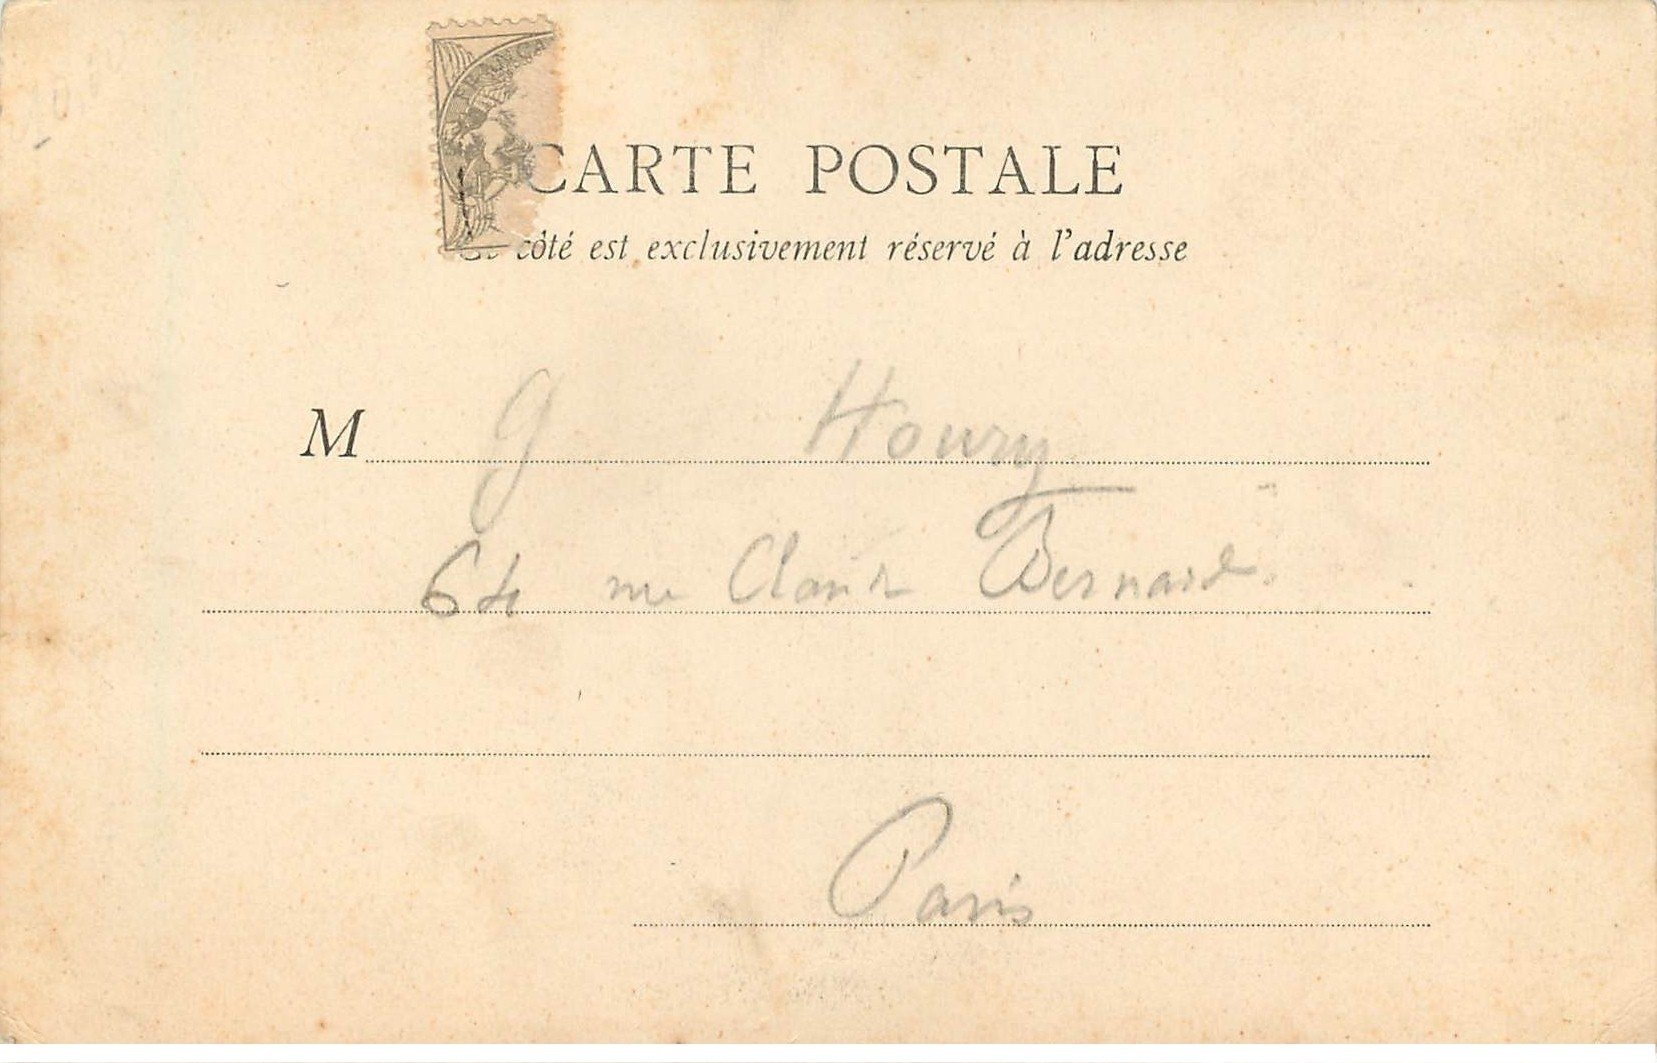 FRANÇA
CARTE POSTALE
Ce côté est exclusivement réservé à l'adresse
M G Houry
64 rue Claude Bernard.
Paris